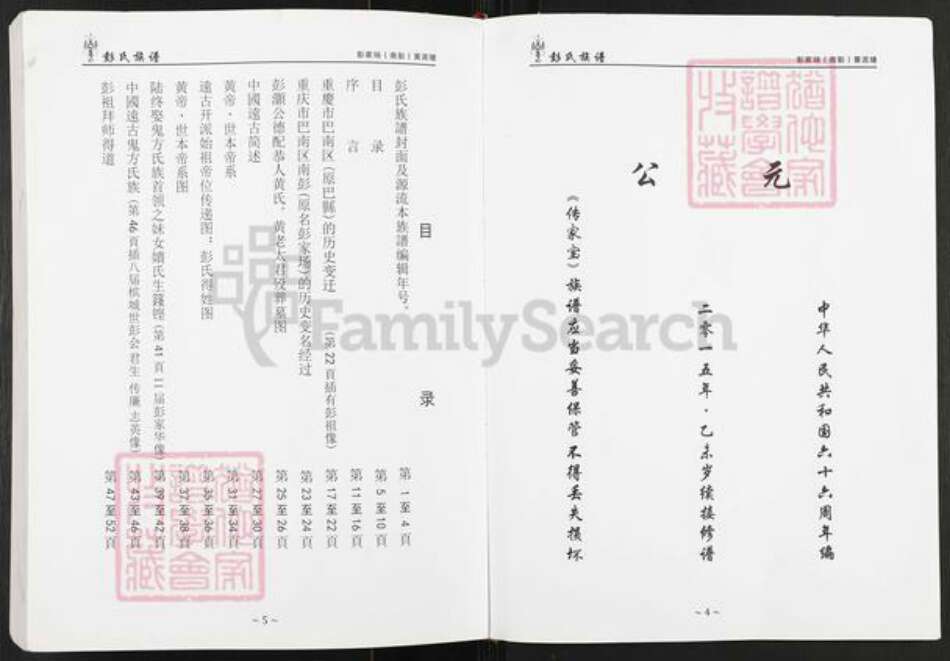 彭氏族谱
公元
中华人民共和国六十六周年编
二零一五年·乙未岁续接修谱
《传家宝》族谱应当妥善保管不得丢失损坏
~4~
彭氏族谱
目录
彭氏族譜封面及源流本族譜编辑年号· 第1至4頁
目录 第5至10頁
序言 第11至16頁
重慶市巴南区(原巴縣)的历史变迁 (第22頁插有彭祖像) 第17至22頁
重庆市巴南区南彭(原名彭家场)的历史变名经过 第23至24頁
彭灏公德配恭人黄氏、黄老太君殁葬墓图 第25至26頁
中國遠古简述 第27至30頁
黄帝·世本帝系 第31至34頁
遠古开派始祖帝位传递图：彭氏得姓图 第35至36頁
黄帝·世本帝系图 第37至38頁
陆终娶鬼方氏族首领之妹女嬇氏生籛铿(第41頁11届彭家华像) 第39至42頁
中國遠古鬼方氏族(第46頁插八届槟城世彭会君生 传廉 志英像) 第43至46頁
彭祖拜师得道 第47至52頁
~5~
FamilySearch